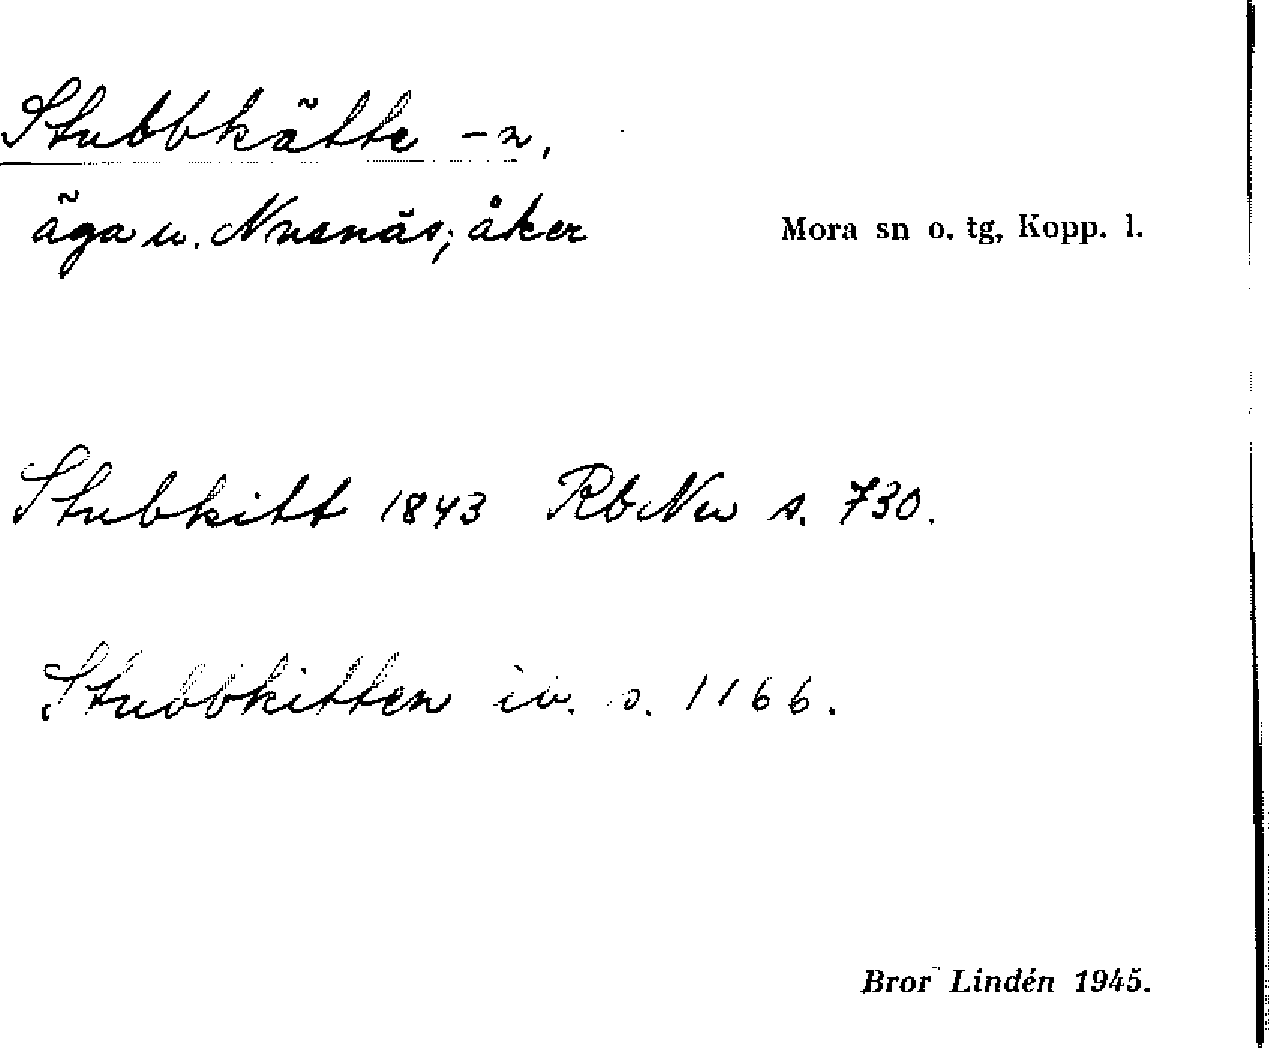 Stubbkätte -n,
äga u. Nusnäs; åker
Mora sn o. tg, Kopp. l.
Stubkitt 1843 RbNu s. 730.
Stubbkitten ib. s. 1166.
Bror Lindén 1945.